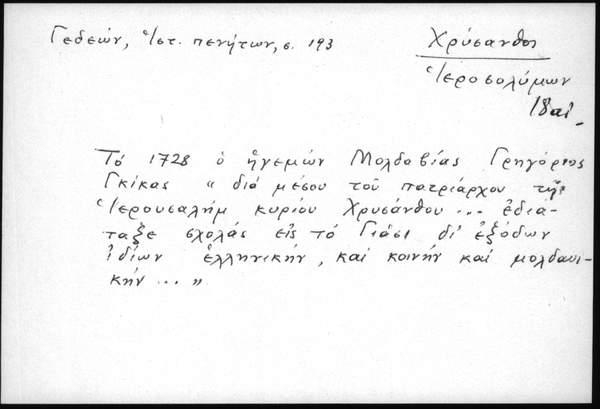 Γεδεών, Ἱστ. πενήτων, σ. 193
Χρύσανθος
Ἱεροσολύμων
18αἰ.
Τό 1728 ὁ ἡγεμών Μολδαβίας Γρηγόριος
Γκίκας « διά μέσου τοῦ πατριάρχου τῆς
Ἱερουσαλήμ κυρίου Χρυσάνθου ... ἐδιά-
ταξε σχολάς εἰς τό Γιάσι δι' ἐξόδων
ἰδίων ἑλληνικήν, καί κοινήν καί μολδαυι-
κήν ... »